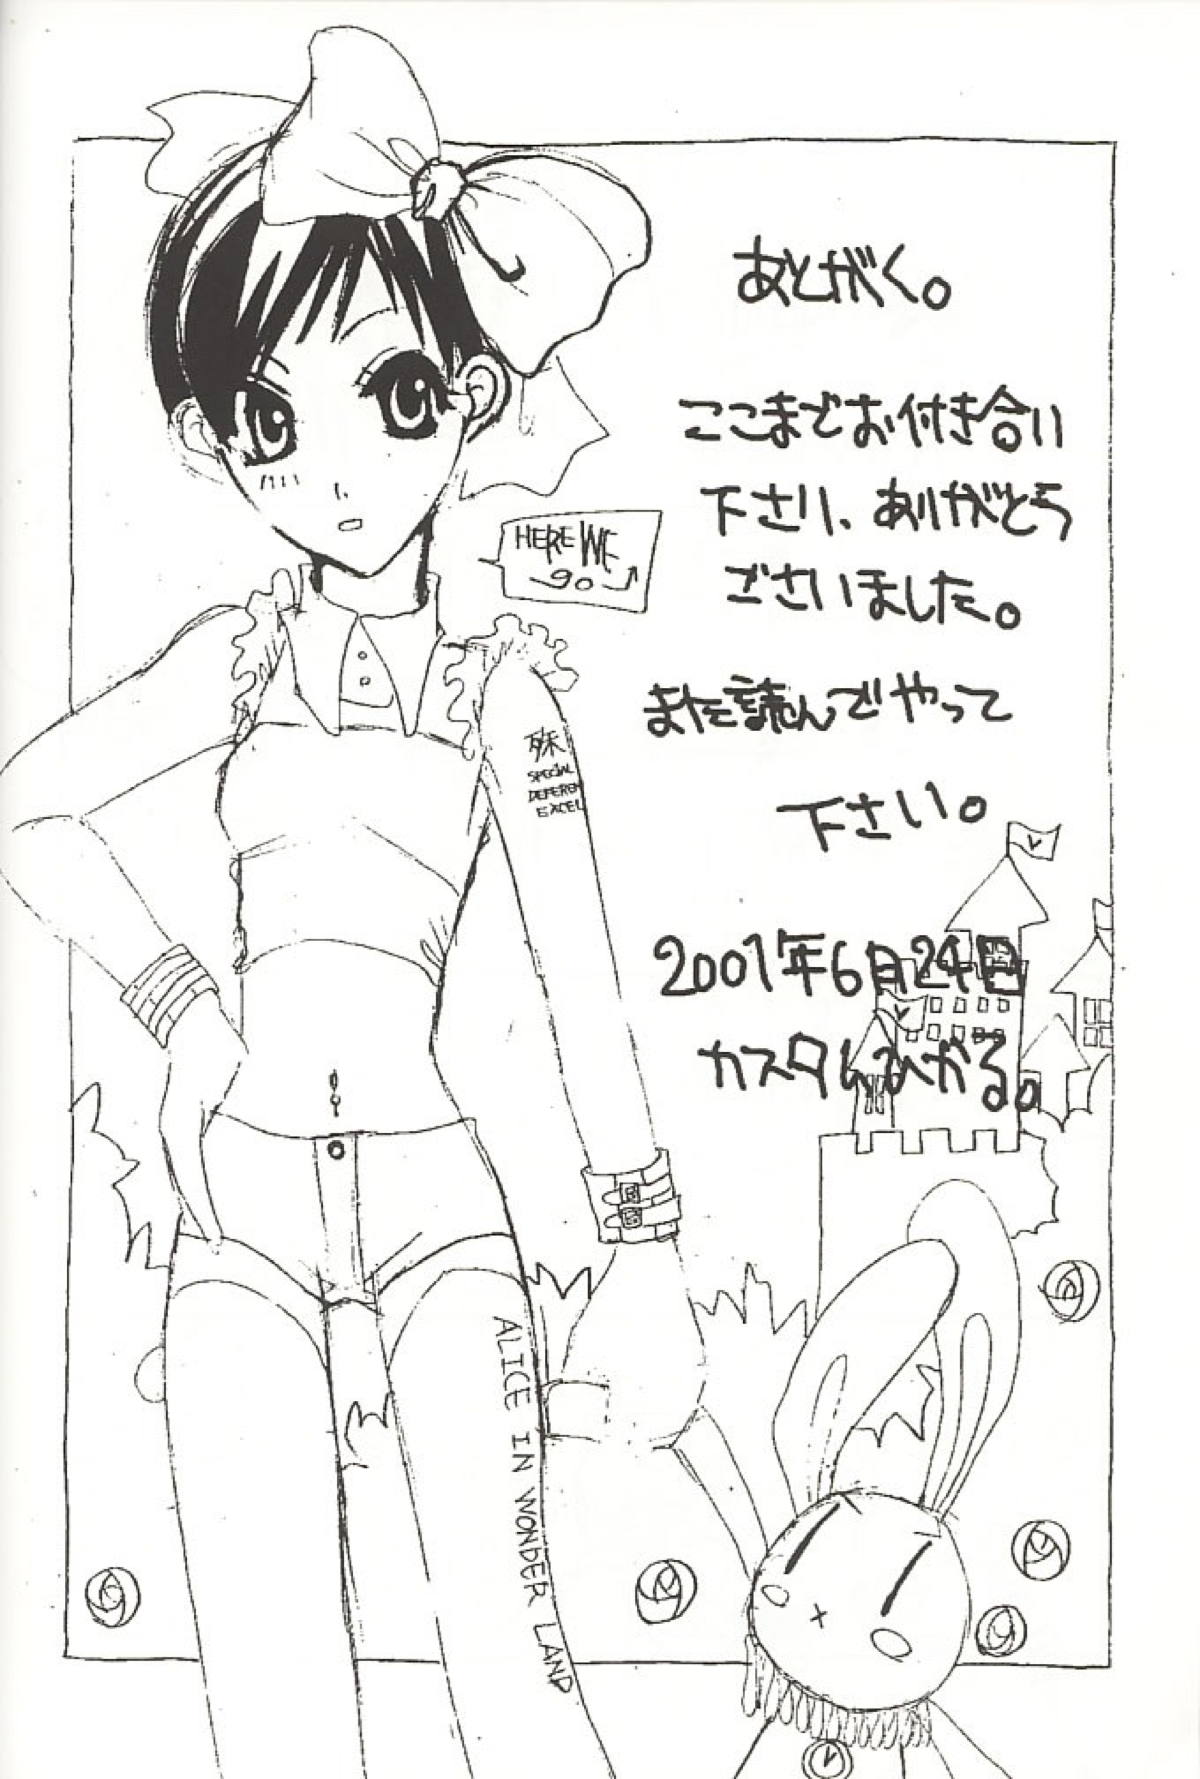 あとがく。
ここまでお付き合い
下さり、ありがとう
ございました。
また読んでやって
下さい。
2001年6月24日
カスタムひかる。
HERE WE
go
殊
SPECIAL
DEFEREN
EXCEL
ALICE IN WONDER LAND